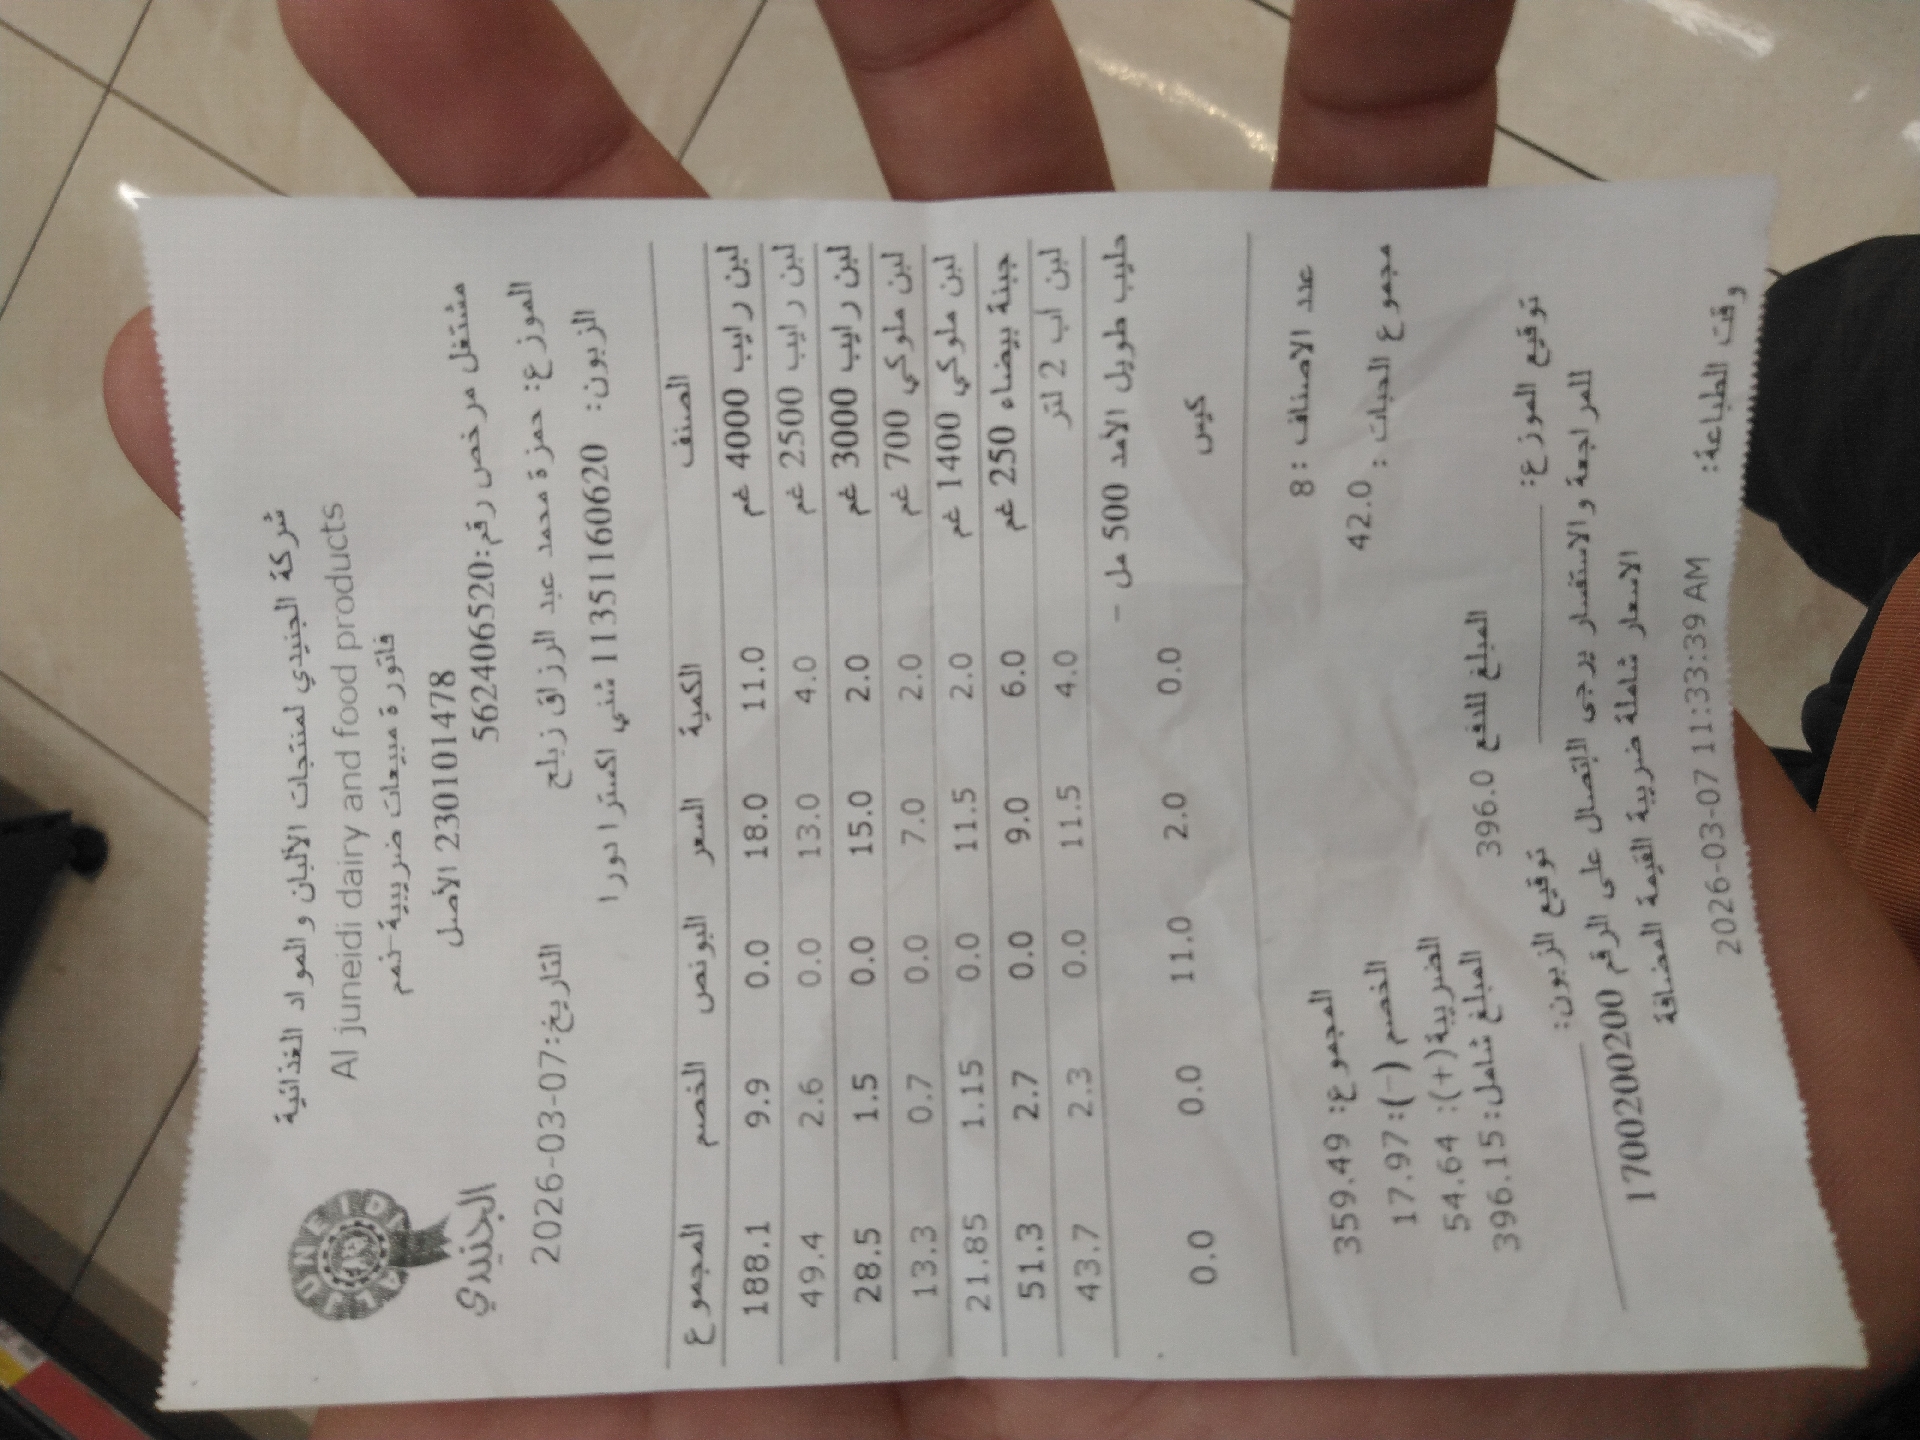 شركة الجنيدي لمنتجات الألبان والمواد الغذائية
Al juneidi dairy and food products
فاتورة مبيعات ضريبية-نمم
230101478 الأصل
مشتغل مرخص رقم:562406520
JUNEIDI
الجنيدي
الموزع: حمزة محمد عبد الرزاق زبلح
التاريخ:2026-03-07
الزبون: 11351160620 شني اكسترا دورا
الصنف الكمية السعر البونص الخصم المجموع
لبن رايب 4000 غم 11.0 18.0 0.0 9.9 188.1
لبن رايب 2500 غم 4.0 13.0 0.0 2.6 49.4
لبن رايب 3000 غم 2.0 15.0 0.0 1.5 28.5
لبن ملوكي 700 غم 2.0 7.0 0.0 0.7 13.3
لبن ملوكي 1400 غم 2.0 11.5 0.0 1.15 21.85
جبنة بيضاء 250 غم 6.0 9.0 0.0 2.7 51.3
لبن اب 2 لتر 4.0 11.5 0.0 2.3 43.7
حليب طويل الأمد 500 مل -
كيس 0.0 2.0 11.0 0.0 0.0
عدد الاصناف :8
المجموع: 359.49
مجموع الحبات : 42.0
الخصم (-):17.97
الضريبة(+): 54.64
المبلغ للدفع 396.0
المبلغ شامل:396.15
توقيع الموزع:
توقيع الزبون:
للمراجعة والاستفسار يرجى الإتصال على الرقم 1700200200
الاسعار شاملة ضريبة القيمة المضافة
وقت الطباعة: 2026-03-07 11:33:39 AM